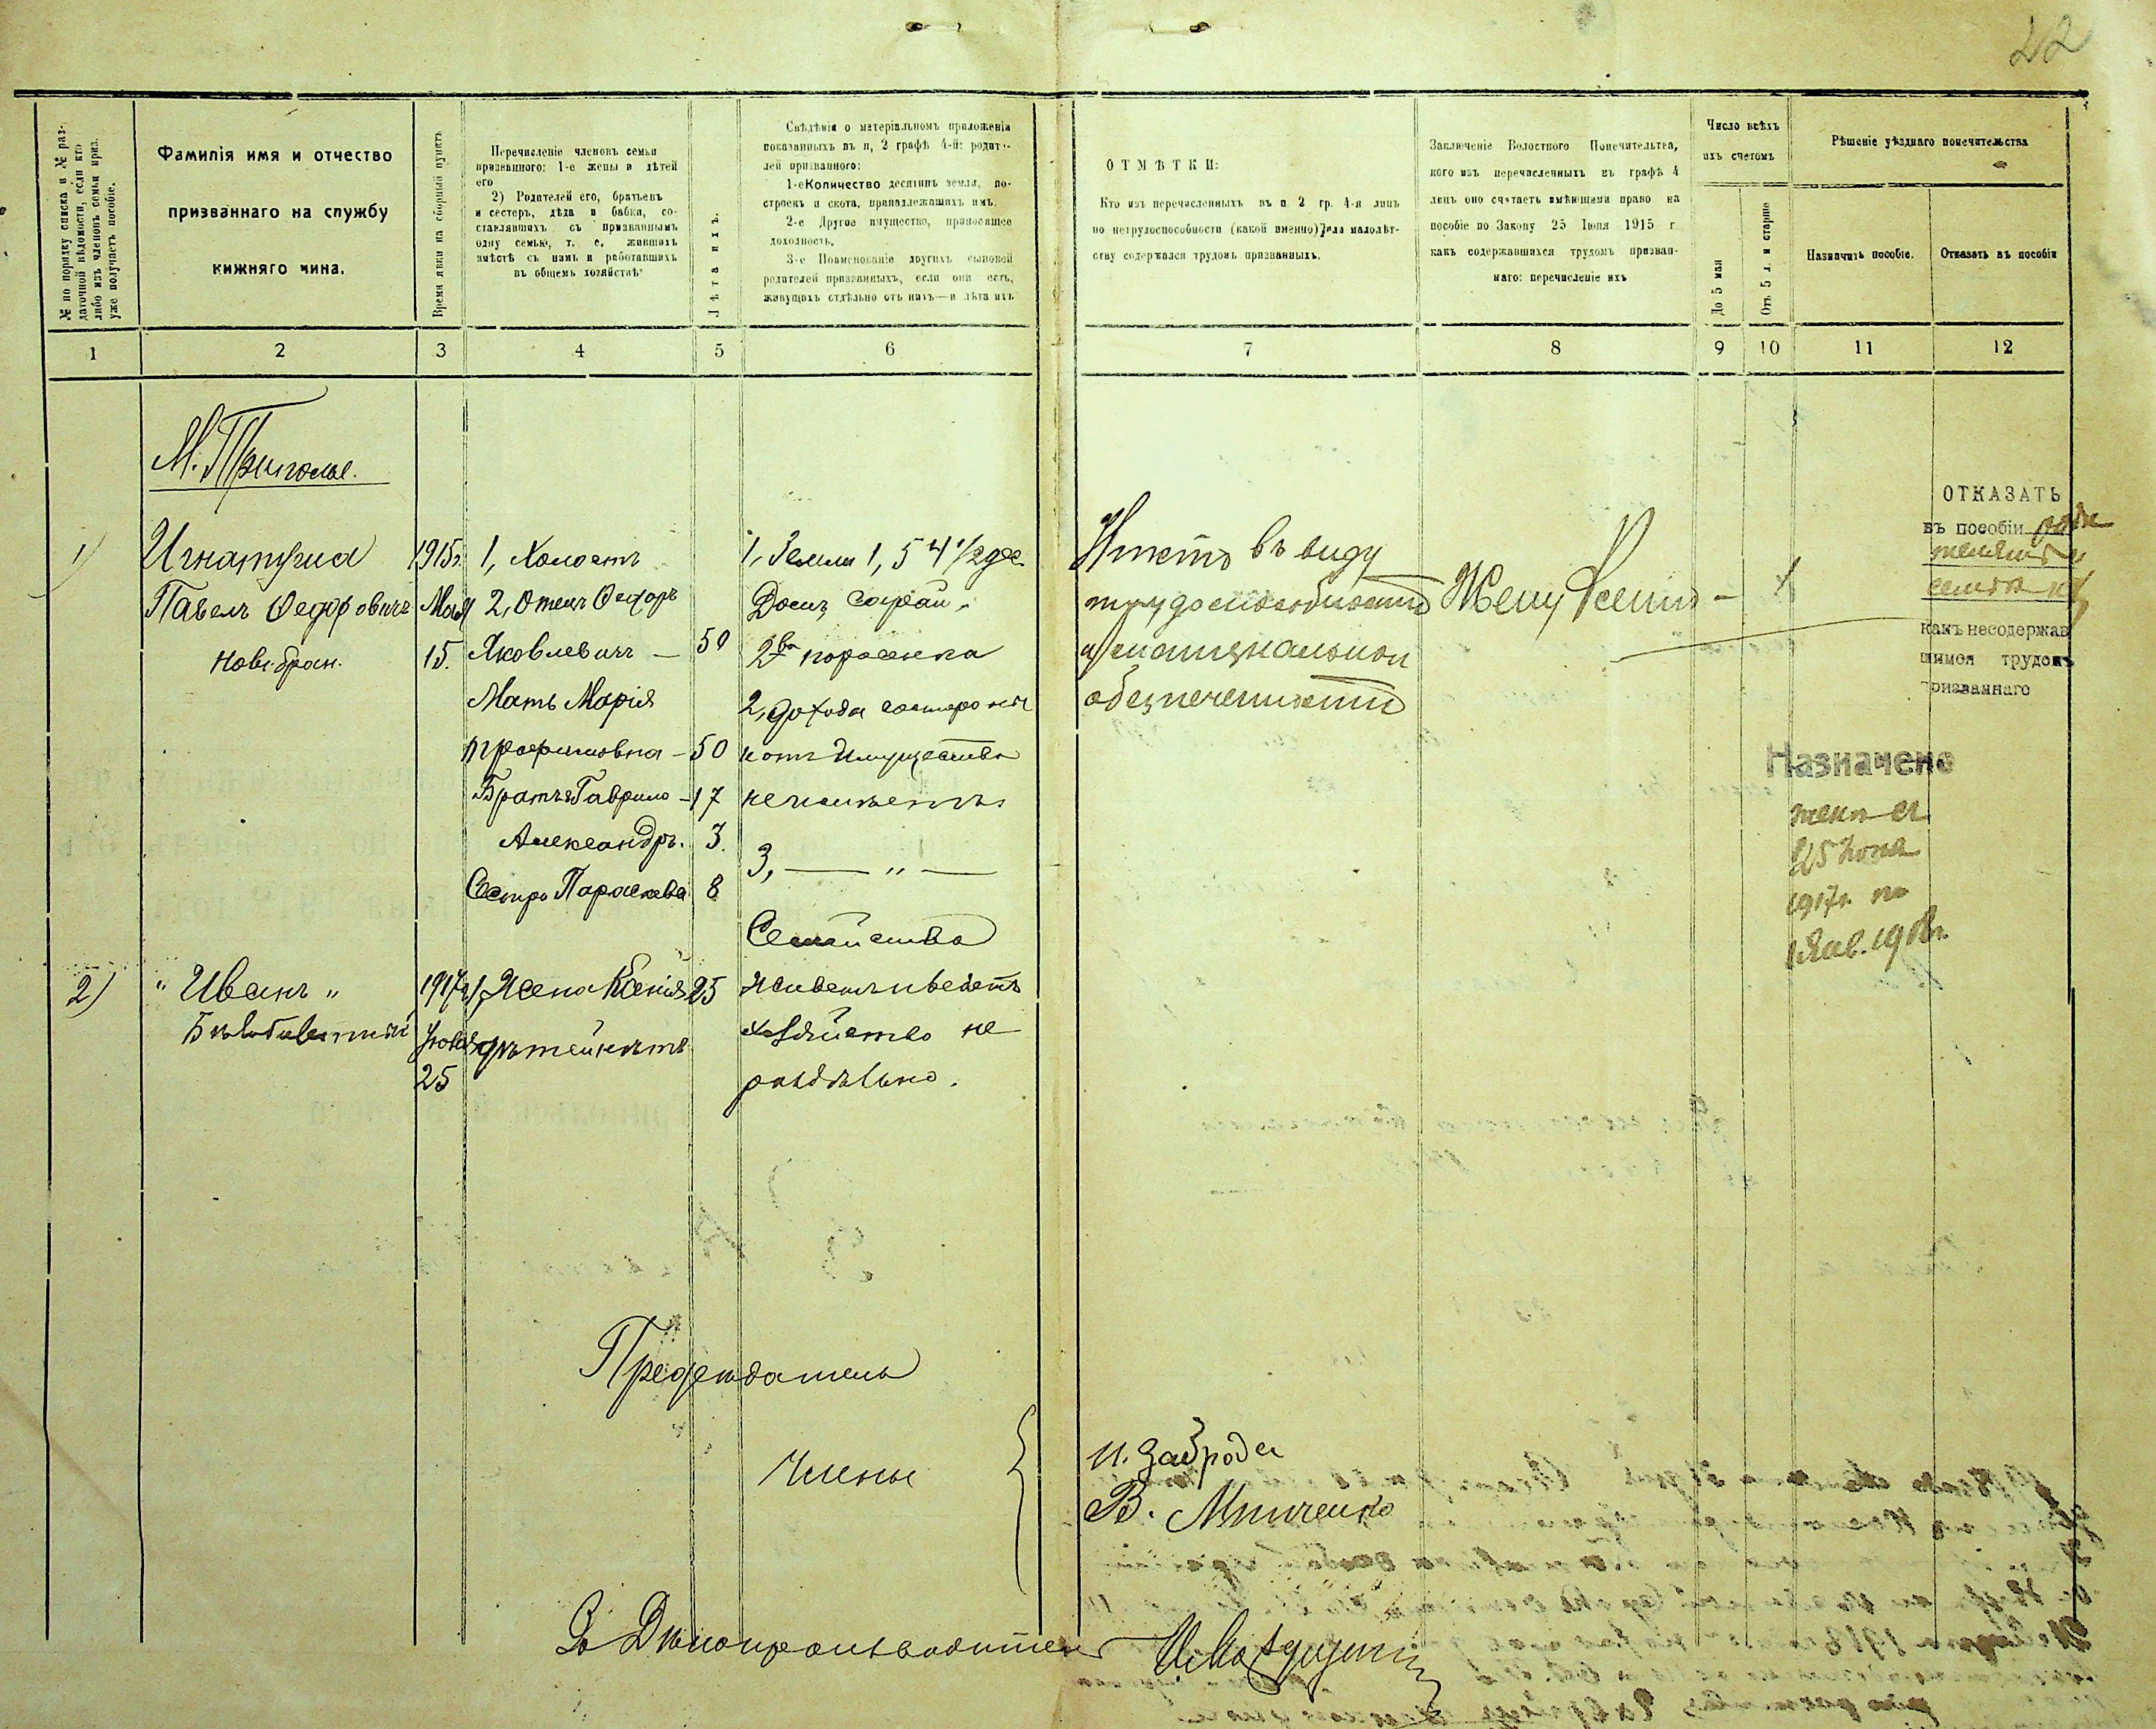 22
№ по порядку списка и № раз-
даточной вѣдомости, если кто
либо изъ членовъ семьи приз.
уже получаетъ пособіе.
Фамилія имя и отчество
призваннаго на службу
нижняго чина.
Время явки на сборный пунктъ
Перечисленіе членовъ семьи
призваннаго: 1-е жены и дѣтей
его
2) Родителей его, братьевъ
и сестеръ, дѣда и бабки, со-
ставлявшихъ съ призваннымъ
одну семью, т. е. жившихъ
вмѣстѣ съ нимъ и работавшихъ
въ общемъ хозяйствѣ
Лѣта ихъ.
Свѣдѣнія о матеріальномъ положеніи
показанныхъ въ п, 2 графѣ 4-й: родите-
лей призваннаго:
1-е Количество десятинъ земли, по-
строекъ и скота, принадлежащихъ имъ.
2-е Другое имущество, приносящее
доходность.
3-е Поименованіе другихъ сыновей
родителей призванныхъ, если они есть,
живущихъ отдѣльно отъ нихъ—и лѣта ихъ
ОТМѢТКИ:
Кто изъ перечисленныхъ въ п. 2 гр. 4-я лицъ
по нетрудоспособности (какой именно) или малолѣт-
ству содержался трудомъ призванныхъ.
Заключеніе Волостного Попечительства,
кого изъ перечисленныхъ въ графѣ 4
лицъ оно считаетъ имѣющими право на
пособіе по Закону 25 Іюня 1915 г.
какъ содержавшихся трудомъ призван-
наго: перечисленіе ихъ
Число всѣхъ
ихъ счетомъ
До 5 мая
Отъ 5 л. и старше
Рѣшеніе уѣзднаго попечительства
Назначить пособіе.
Отказать въ пособіи
1 2 3 4 5 6 7 8 9 10 11 12
М. Триполье.
1)
Игнатуша
Павелъ Ѳедоровичъ
Новобран.
1915г.
Мая
15.
1, Холостъ
2, Отецъ Ѳедоръ
Яковлевичъ — 50
Мать Марія
Трофимовна — 50
Братья Гаврило — 17
Александръ. 3.
Сестра Параскева 8
1, Земли 1, 5 4 1/2 дес.
Домъ сарай.
2ва поросенка
2, дохода
имущества
не имѣетъ
3, — " —
Семейство
живетъ и ведетъ
хозяйство не
раздѣльно.
Имѣть въ виду
трудоспособность
и матеріальной
обезпеченности
Жену Ксенію — 1
ОТКАЗАТЬ
въ пособіи роди
телямъ и
какъ несодержав
шимся трудомъ
призваннаго
Назначено
женѣ съ
25 Іюня
1917г. по
1 Янв. 1918г.
2)
" Иванъ "
Бѣлобилетный
1917г.
Іюня
25
1, Жена Ксенія 25
дѣтей нѣтъ
Предсѣдатель
Члены
И. Заброда
В. Мищенко
За Дѣлопроизводителя